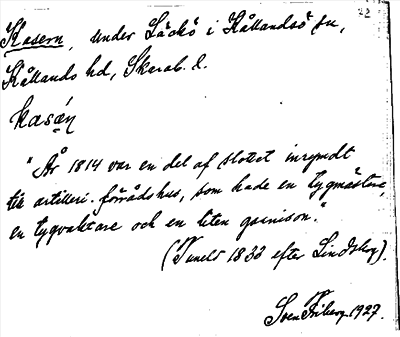 22
Kasern, under Läckö i Kållandsö sn,
Kållands hd, Skarab. l.
kasä́n
"År 1814 var en del af slottet inrymdt
till artilleri-förrådshus, som hade en tygmästare,
en tygvaktare och en liten garnison."
(Tuneld 1833 efter Lindskog).
Sven Friberg 1927.